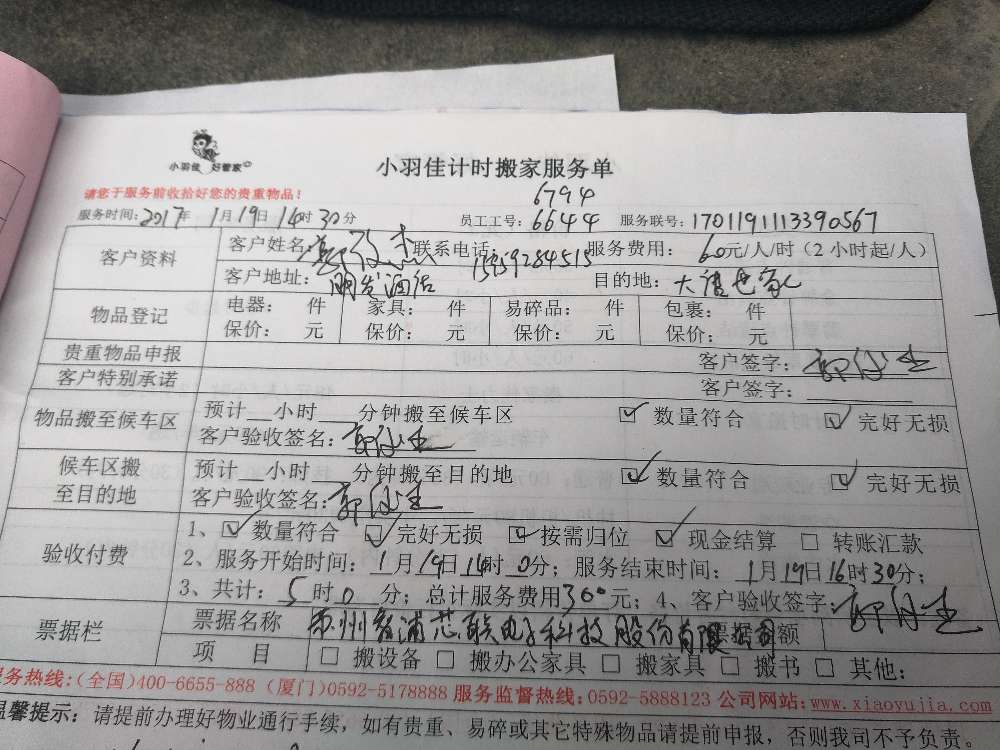 小羽佳 好管家
小羽佳计时搬家服务单
请您于服务前收拾好您的贵重物品!
6794
服务时间: 2017年 1月19日 14时30分 员工工号: 6644 服务联号: 1701191113390567
客户资料 客户姓名: 联系电话: 15959284515 服务费用: 60元/人/时（2小时起/人）
客户地址: 明发酒店 目的地: 大唐世家
物品登记 电器: 件 家具: 件 易碎品: 件 包裹: 件
保价: 元 保价: 元 保价: 元 保价: 元
贵重物品申报 客户签字:
客户特别承诺 客户签字:
物品搬至候车区 预计__小时 分钟搬至候车区 ☑ 数量符合 ☑ 完好无损
客户验收签名:
候车区搬至目的地 预计__小时 分钟搬至目的地 ☑ 数量符合 ☑ 完好无损
客户验收签名:
验收付费 1、☑ 数量符合 ☑ 完好无损 ☑ 按需归位 ☑ 现金结算 □ 转账汇款
2、服务开始时间: 1月19日14时0分; 服务结束时间: 1月19日16时30分;
3、共计: 5时0 分; 总计服务费用300元; 4、客户验收签字:
票据栏 票据名称 苏州智浦芯联电子科技股份有限公司 票据金额
项 目 □ 搬设备 □ 搬办公家具 □ 搬家具 □ 搬书 □ 其他:
服务热线:(全国)400-6655-888 (厦门)0592-5178888 服务监督热线: 0592-5888123 公司网站: www.xiaoyujia.com
温馨提示: 请提前办理好物业通行手续，如有贵重、易碎或其它特殊物品请提前申报，否则我司不予负责。